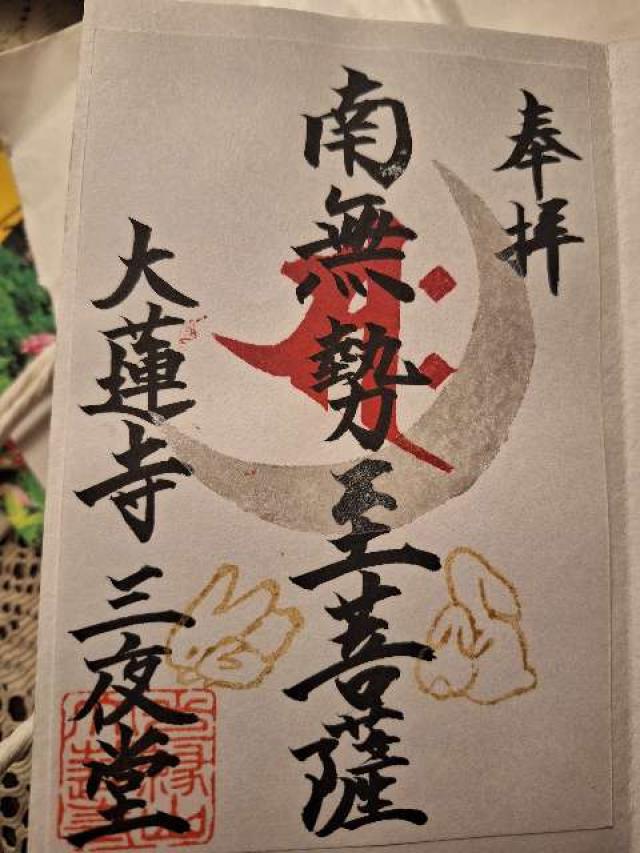 奉拝
南無勢至菩薩
大蓮寺 三夜堂